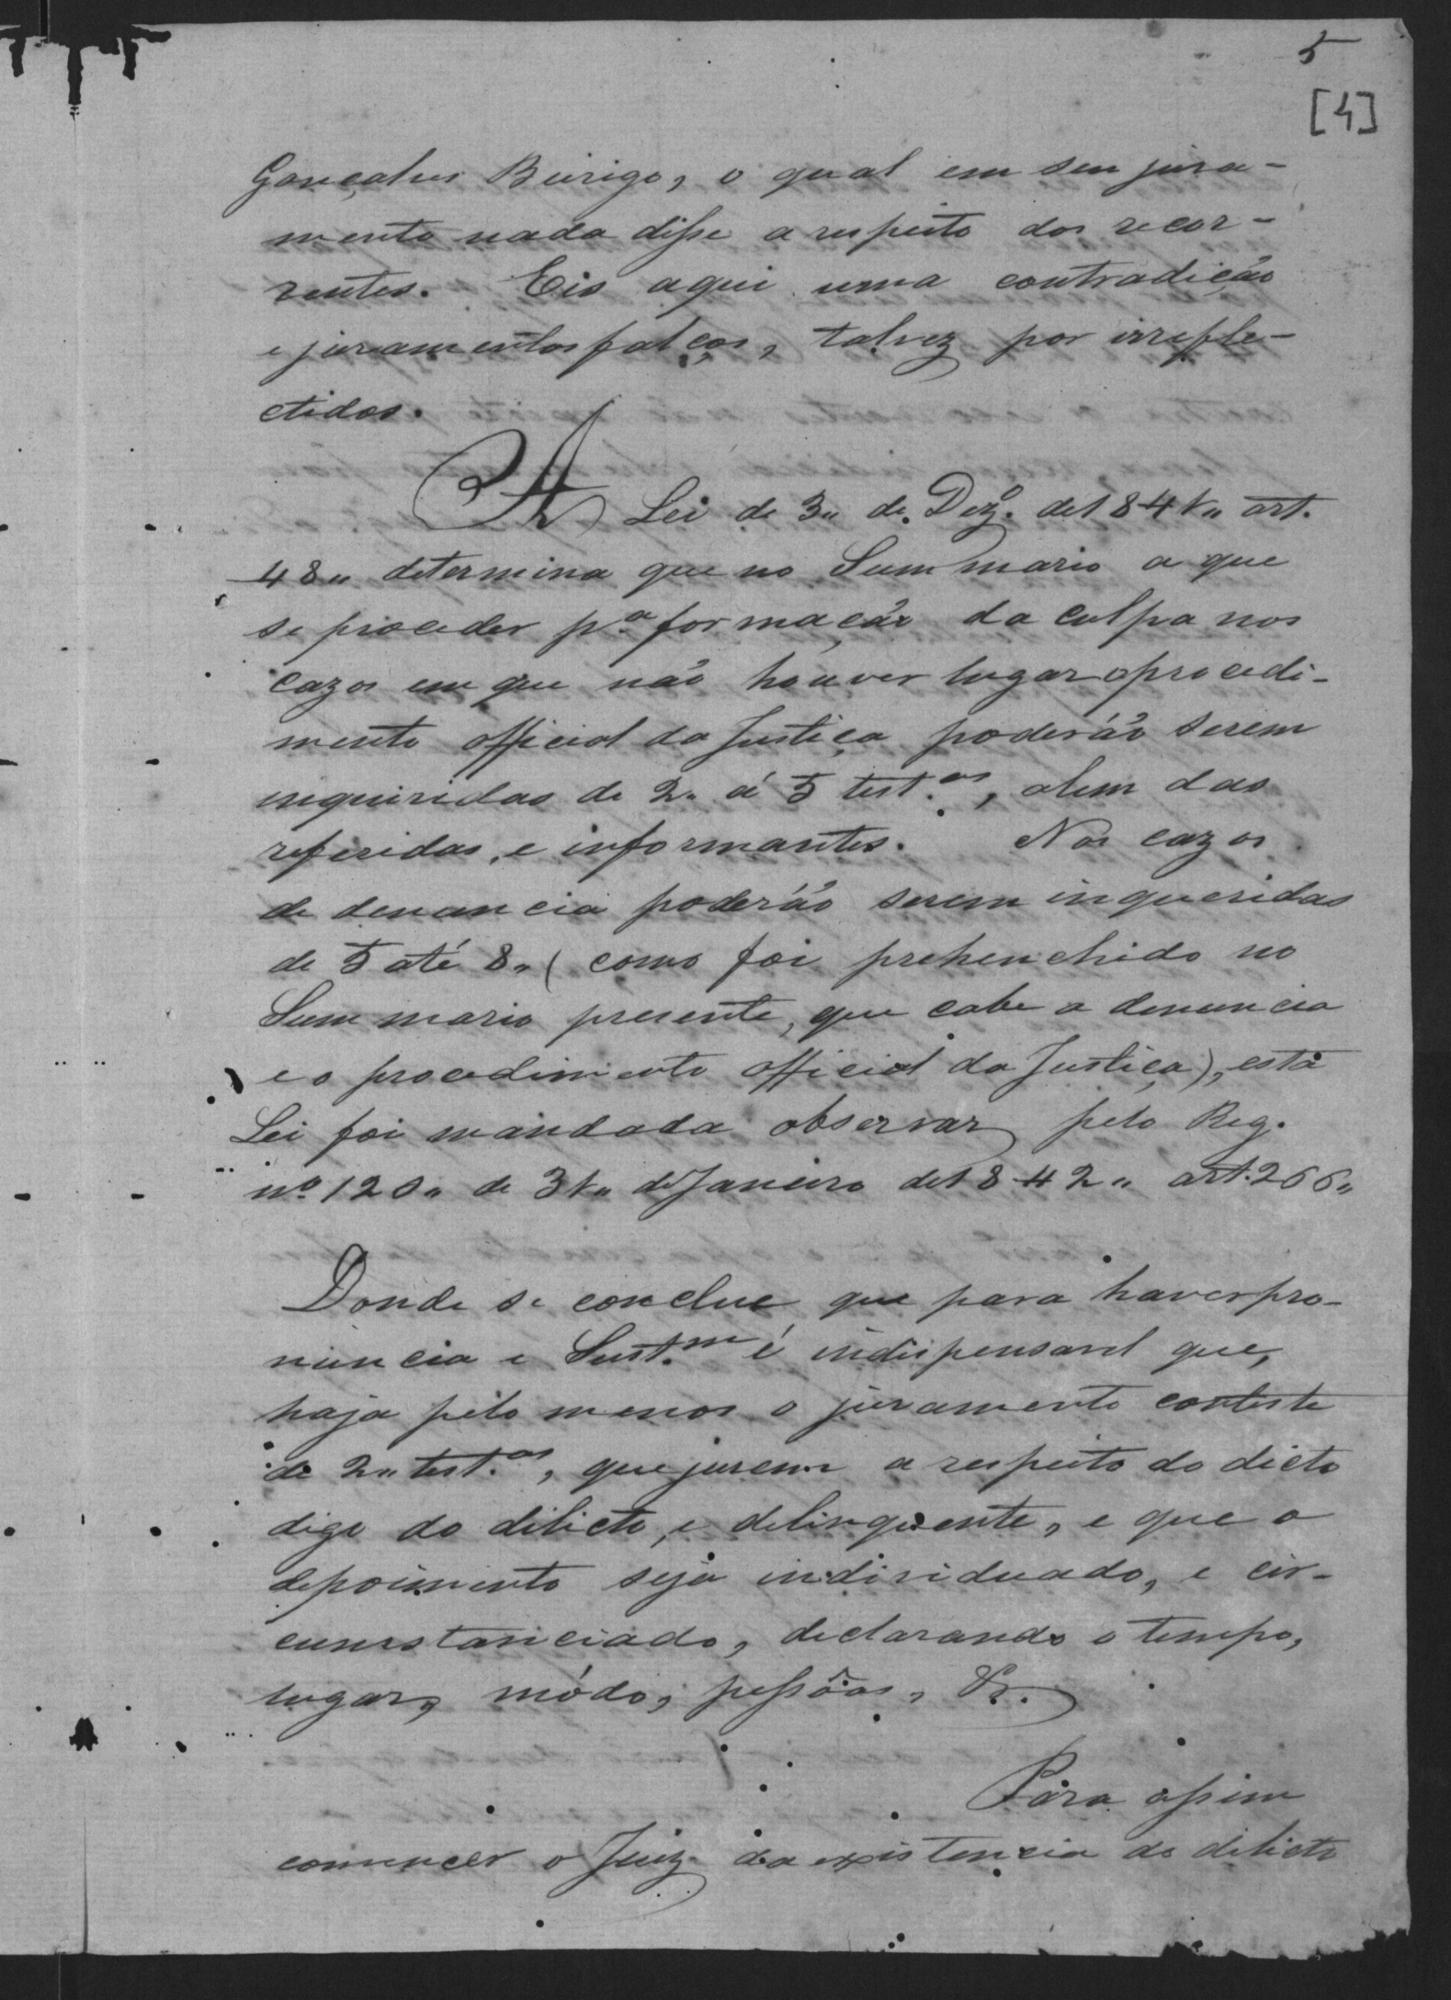 5
[4]
Gonçalves Burigo, o qual em seu jura-
mento nada disse a respeito dos recor-
rentes. Eis aqui uma contradição
e juramentos falços, talvez por irrefle-
ctidos.
A Lei de 3,, de Dezº. de 1841,, art.
48,, determina que no Summario a que
se proceder pª formação da culpa nos
cazos em que não houver lugar o procedi-
mento official da Justiça poderáõ serem
inqueridas de 2,, á 5 test.as, alem das
referidas, e informantes. Nos cazos
de denuncia poderáõ serem inqueridas
de 5 até 8,, (como foi prehenchido no
Summario presente, que cabe a denuncia
e o procedimento official da Justiça), esta
Lei foi mandada observar pelo Reg.
nº 120,, de 31,, de Janeiro de 1842,, art. 266,,
Donde se conclue que para haver pro-
nuncia e Sust.m é indispensavel que,
haja pelo menos o juramento conteste
de 2,, test.as, que jurem a respeito do dicto
digo do delicto, e delinquente, e que o
depoimento seja individuado, e cir-
cumstanciado, declarando o tempo,
lugar, módo, pessôas, &.
Para assim
convencer o Juiz da existencia do delicto